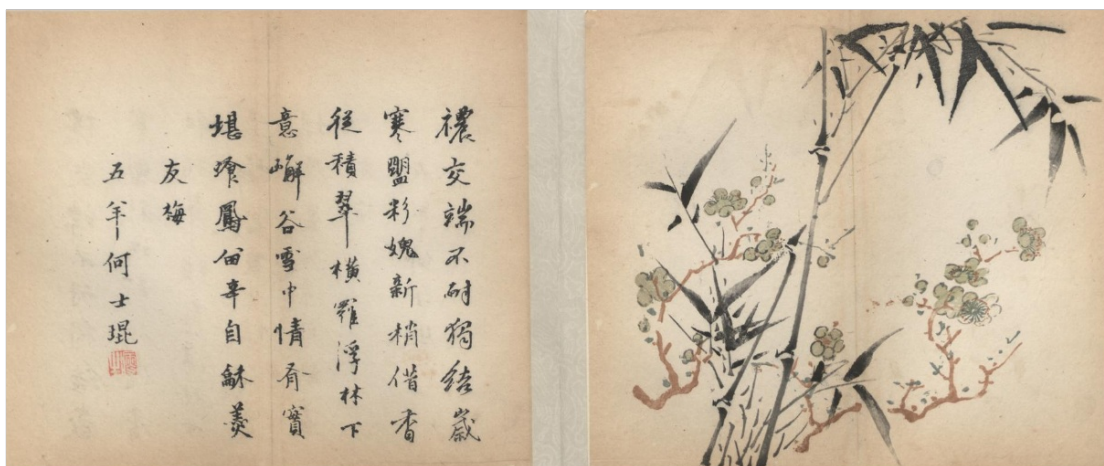 襛交端不耐獨結歲
寒盟彩媿新梢借香
從積翠橫羅浮林下
意嶰谷雪中情有實
堪飡鳳留辛自龢羹
友梅
五羊何士琨